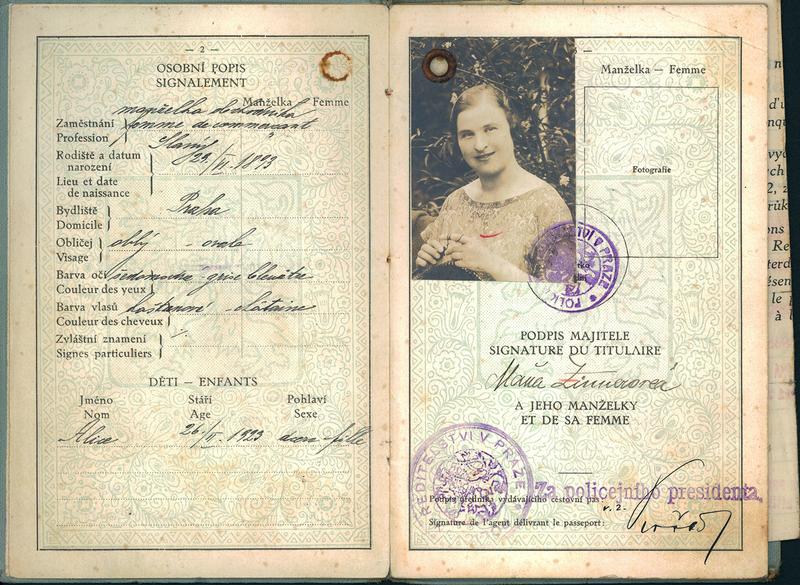 — 2 —
OSOBNÍ POPIS
SIGNALEMENT
Manželka — Femme
manželka obchodníka
Zaměstnání
femme de commerçant
Profession
Slaný
Rodiště a datum
narození
29/VI. 1893
Lieu et date
de naissance
Bydliště
Praha
Domicile
Obličej
oblý - ovale
Visage
Barva očí
šedomodré - gris bleuâtre
Couleur des yeux
Barva vlasů
kaštanové - châtains
Couleur des cheveux
Zvláštní znamení
Signes particuliers
DĚTI — ENFANTS
Jméno Stáří Pohlaví
Nom Age Sexe
Alice 26/II. 1923 dcera - fille
Manželka — Femme
Fotografie
POLIC TVÍ V PRAZE
PODPIS MAJITELE
SIGNATURE DU TITULAIRE
A JEHO MANŽELKY
ET DE SA FEMME
ŘEDITELSTVÍ V PRAZE
Za policejního presidenta
Podpis úředníka vydávajícího cestovní pas
v. z.
Signature de l'agent délivrant le passeport: